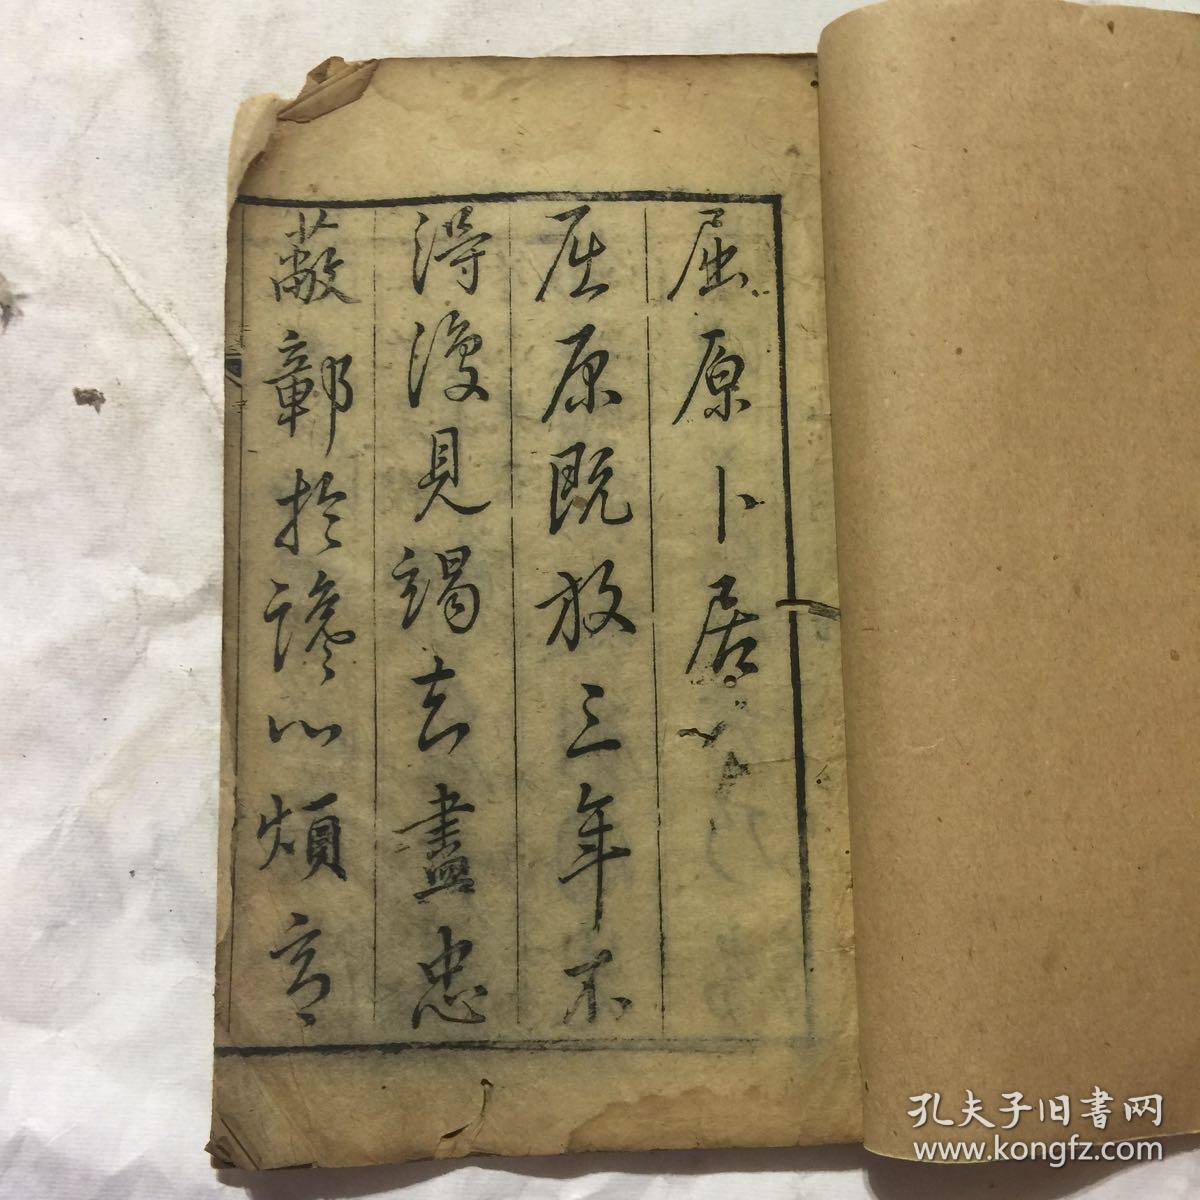 屈原卜居
屈原既放三年不
得復見竭志盡忠
蔽鄣於讒心煩意
孔夫子旧書网
www.kongfz.com